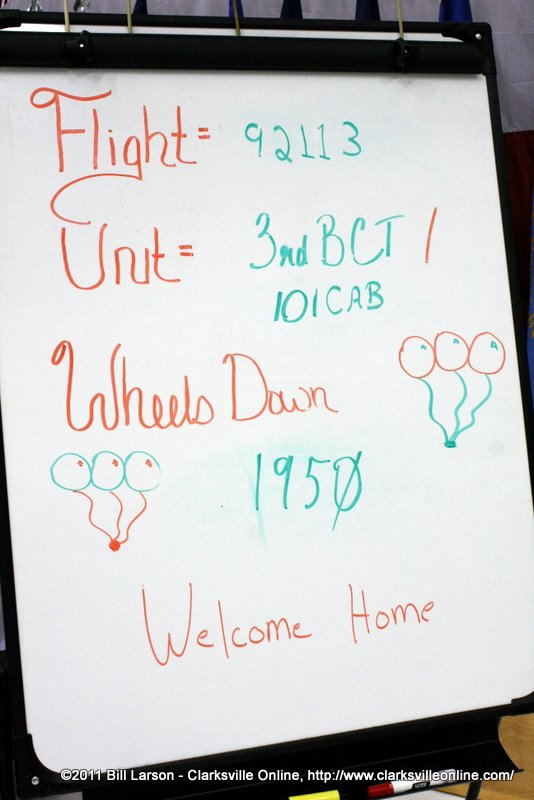 Flight= 92113
Unit= 3rd BCT /
101 CAB
Wheels Down
1950
Welcome Home
©2011 Bill Larson - Clarksville Online, http://www.clarksvilleonline.com/